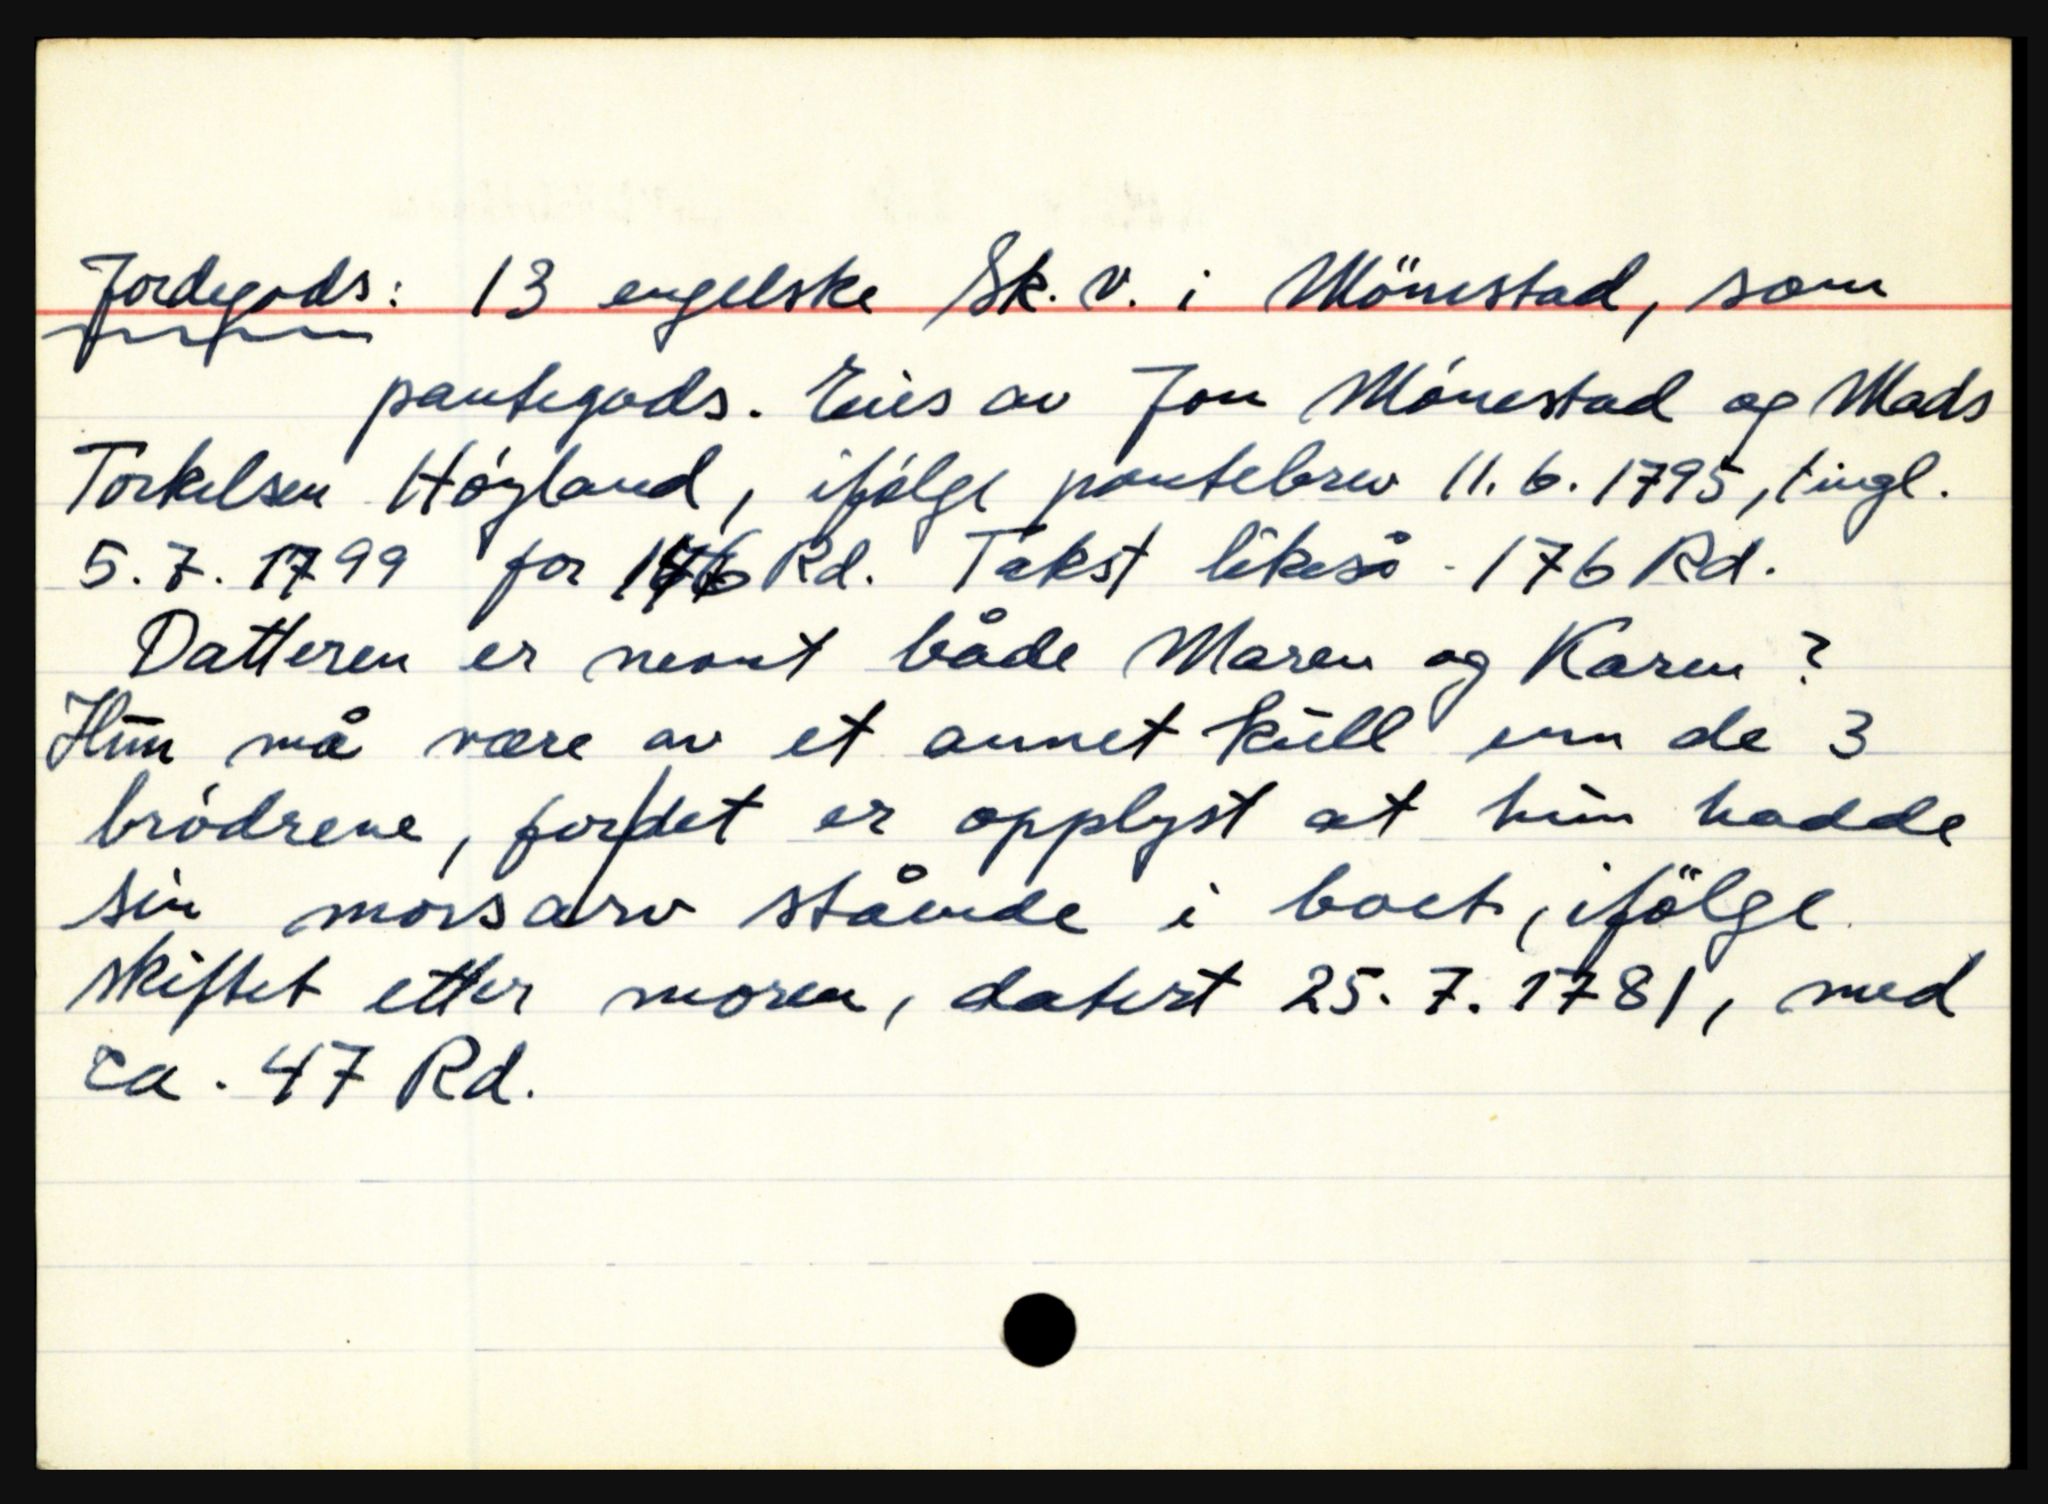 Jordegods: 13 engelske Sk. v. i Mönestad, som
pantegods. Eies av Jon Mónestad og Mads
Torkelsen Hóyland, ifólge pantebrev 11.6.1795, tingl.
5.7.1799 for 176 Rd. Takst likeså 176 Rd.
Datteren er nevnt både Maren og Karen?
Hun må være av et annet kull enn de 3
bródrene, for det er opplyst at hun hadde
sin morsarv stående i boet, ifölge
skiftet etter moren, datert 25.7.1781, med
ca. 47 Rd.